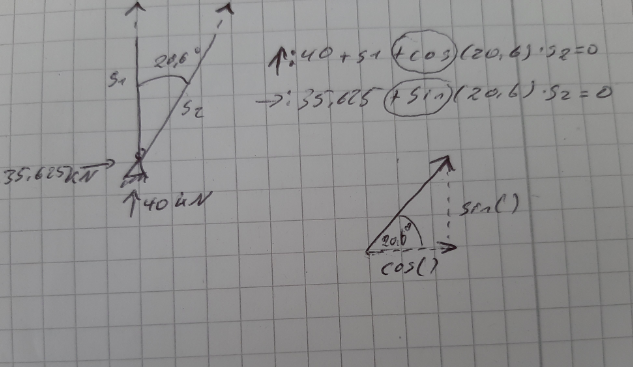 20,6°
S1
S2
35,625kN →
↑40 kN
↑: 40 + S1 + cos(20,6) · S2 = 0
→: 35,625 + sin(20,6) · S2 = 0
sin()
20,6°
cos()